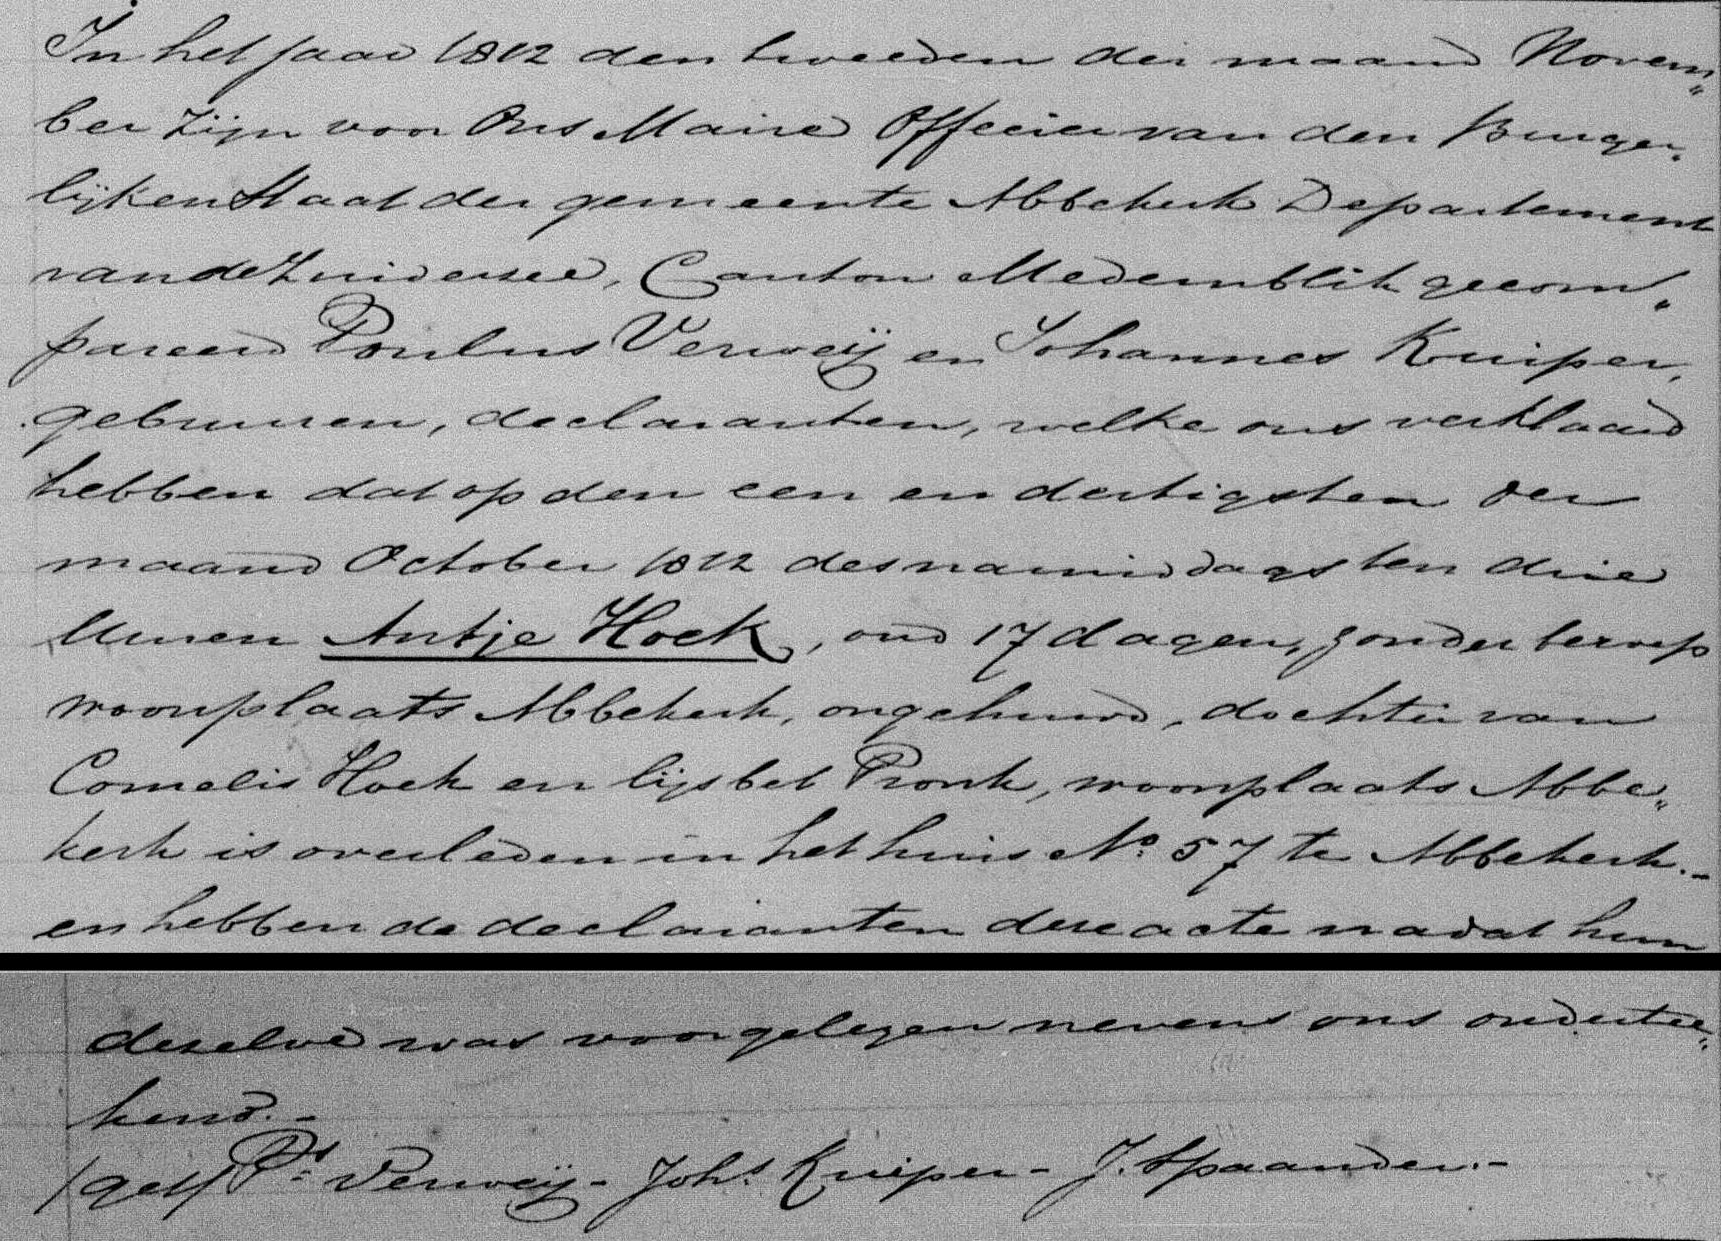 In het Jaar 1812 den tweeden der maand Novem„
ber zijn voor Ons Maire Officier van den Burger„
lijken Staat der gemeente Abbekerk Departement
van de Zuiderzee, Canton Medemblik gecom„
pareerd Poulus Verweij en Johannes Kuiper,
gebuuren, declaranten, welke ons verklaard
hebben dat op den een en dertigsten der
maand October 1812 des namiddags ten drie
Uuren Antje Hoek, oud 17 dagen, zonder beroep
woonplaats Abbekerk, ongehuwd, dochter van
Cornelis Hoek en lijsbet Pronk, woonplaats Abbe„
kerk is overleden in het huis No. 57 te Abbekerk.-
en hebben de declaranten deze acte nadat hun
dezelve was voorgelezen nevens ons onderteé„
kend.-
/get/ Ps. Verweij - Johs. Kuiper - J. Spaander.-